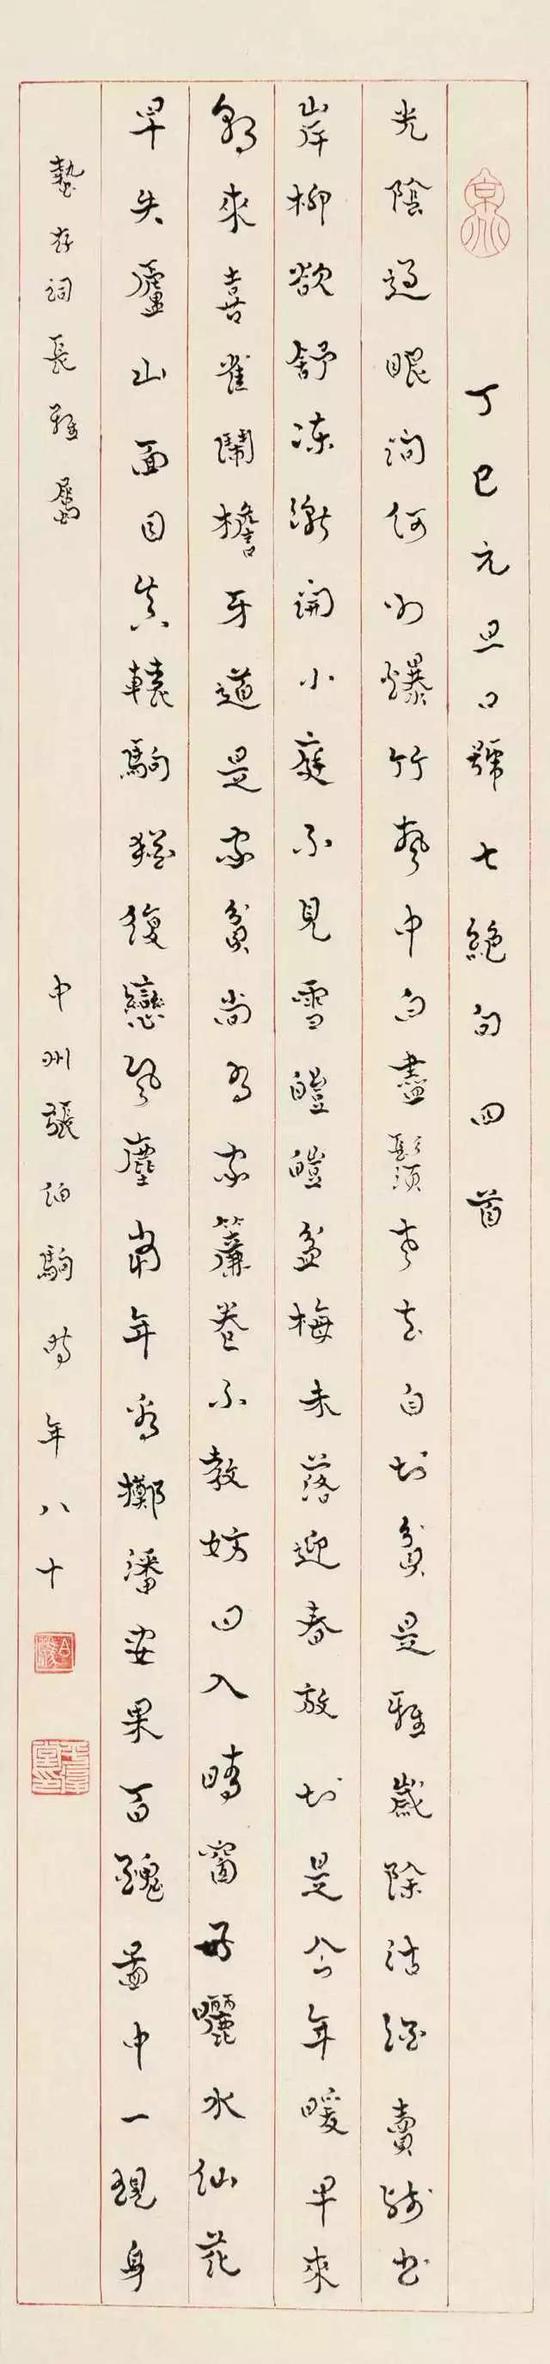 丁巳元旦口號七絕句四首
光陰過眼問何如爆竹聲中白盡鬚老去自知貧是雅歲除沽酒賣殘書
岸柳欲舒凍漸開小庭不見雪皚皚盆梅未落迎春放知是今年暖早來
朝來喜雀鬧檐牙道是家貧尚有家簾卷不教妨日入晴窗好曬水仙花
早失廬山面目真轅駒猶復戀風塵當年看擲潘安果百醜圖中一現身
蟄存詞長雅屬
中州張伯駒時年八十